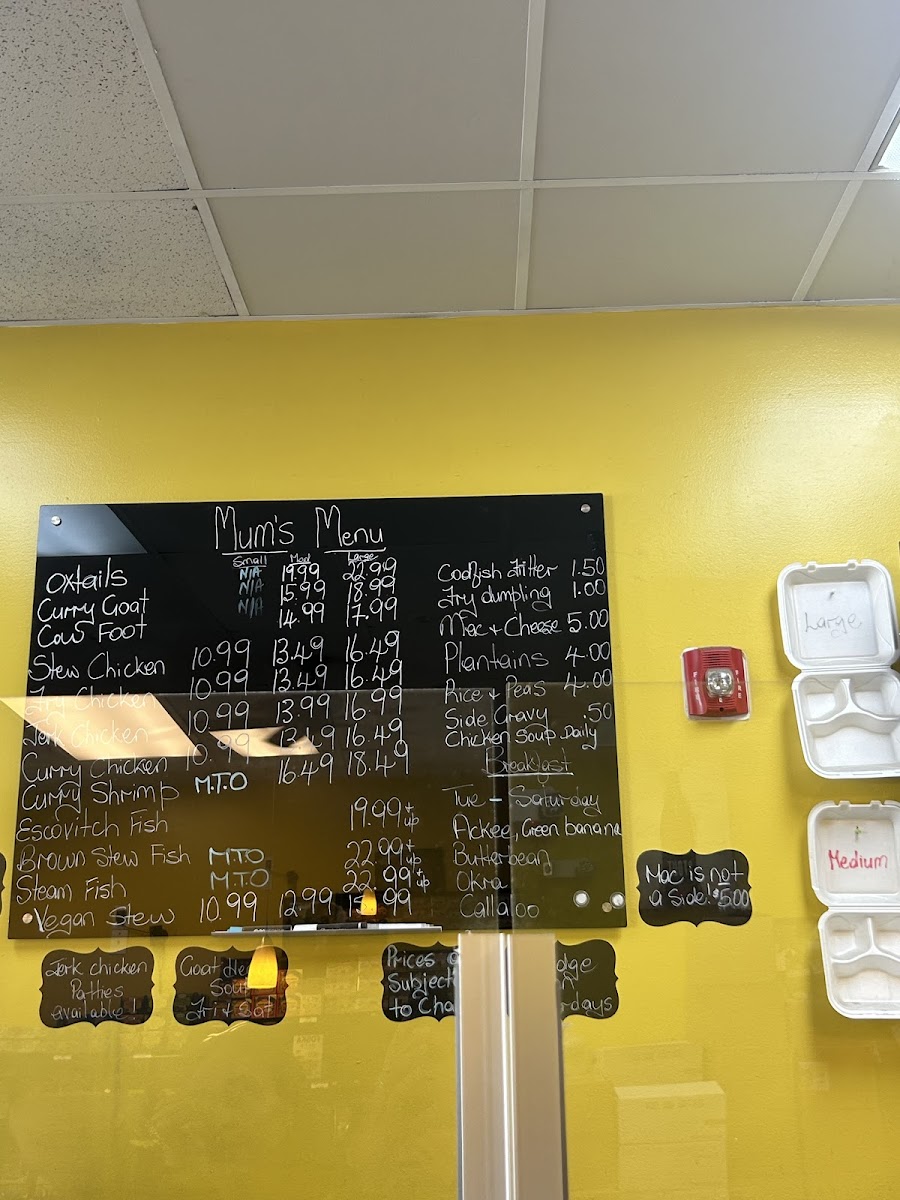 Mum's Menu
Small Med Large
Oxtails N/A 19.99 22.99
Curry Goat N/A 15.99 18.99
Cow Foot N/A 14.99 17.99
Stew Chicken 10.99 13.49 16.49
Fry Chicken 10.99 13.49 16.49
Jerk Chicken 10.99 13.99 16.99
Curry Chicken 10.99 13.49 16.49
Curry Shrimp M.T.O 16.49 18.49
Escovitch Fish 19.99+ up
Brown Stew Fish M.T.O 22.99+ up
Steam Fish M.T.O 22.99+ up
Vegan Stew 10.99 12.99 99
Codfish Fritter 1.50
Fry dumpling 1.00
Mac + Cheese 5.00
Plantains 4.00
Rice + Peas 4.00
Side Gravy .50
Chicken Soup Daily
Breakfast
Tue - Saturday
Ackee, Green banana
Butterbean
Okra
Callaloo
Jerk chicken
Patties
available!
Goat
Sou
Fri + Sat
Prices
Subject
to Cha
dge
rdays
Mac is not
a Side! $5.00
FIRE
FIRE
Large
Medium